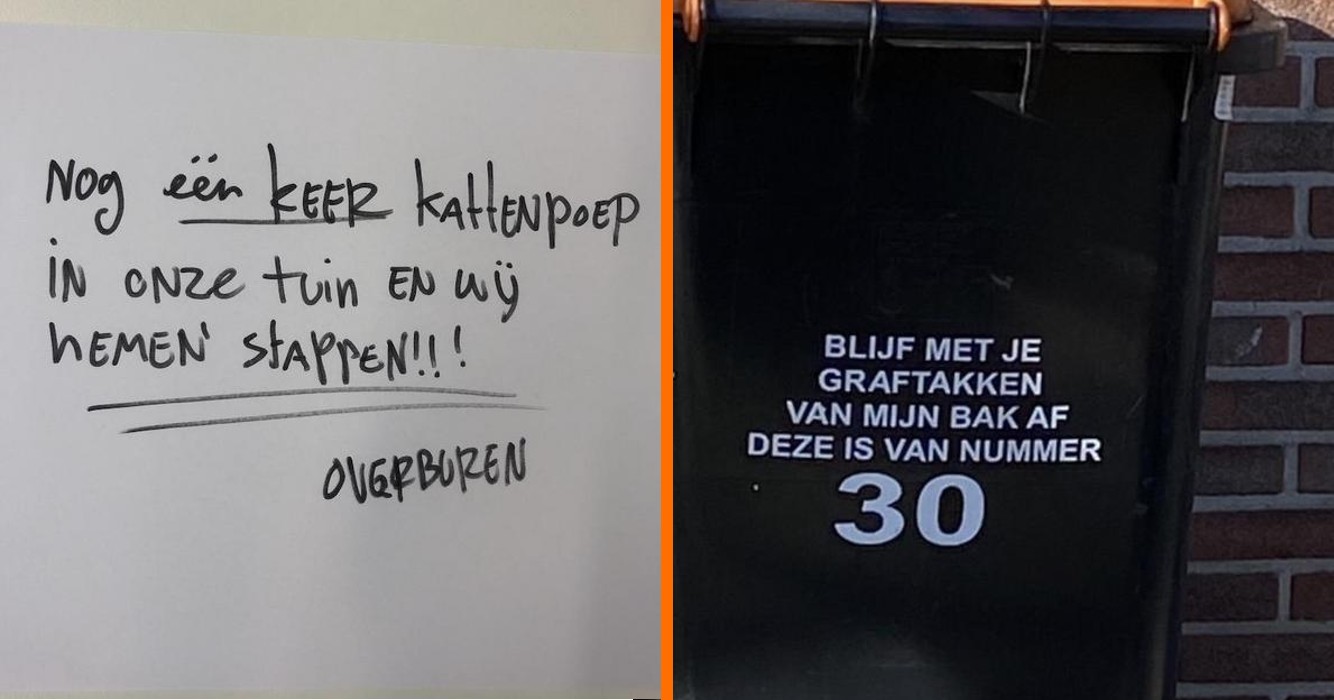 Nog één KEER kattENpoEP
iN oNze tuin EN wij
NEMEN stAppEN!!!
OVERBUREN
BLIJF MET JE
GRAFTAKKEN
VAN MIJN BAK AF
DEZE IS VAN NUMMER
30